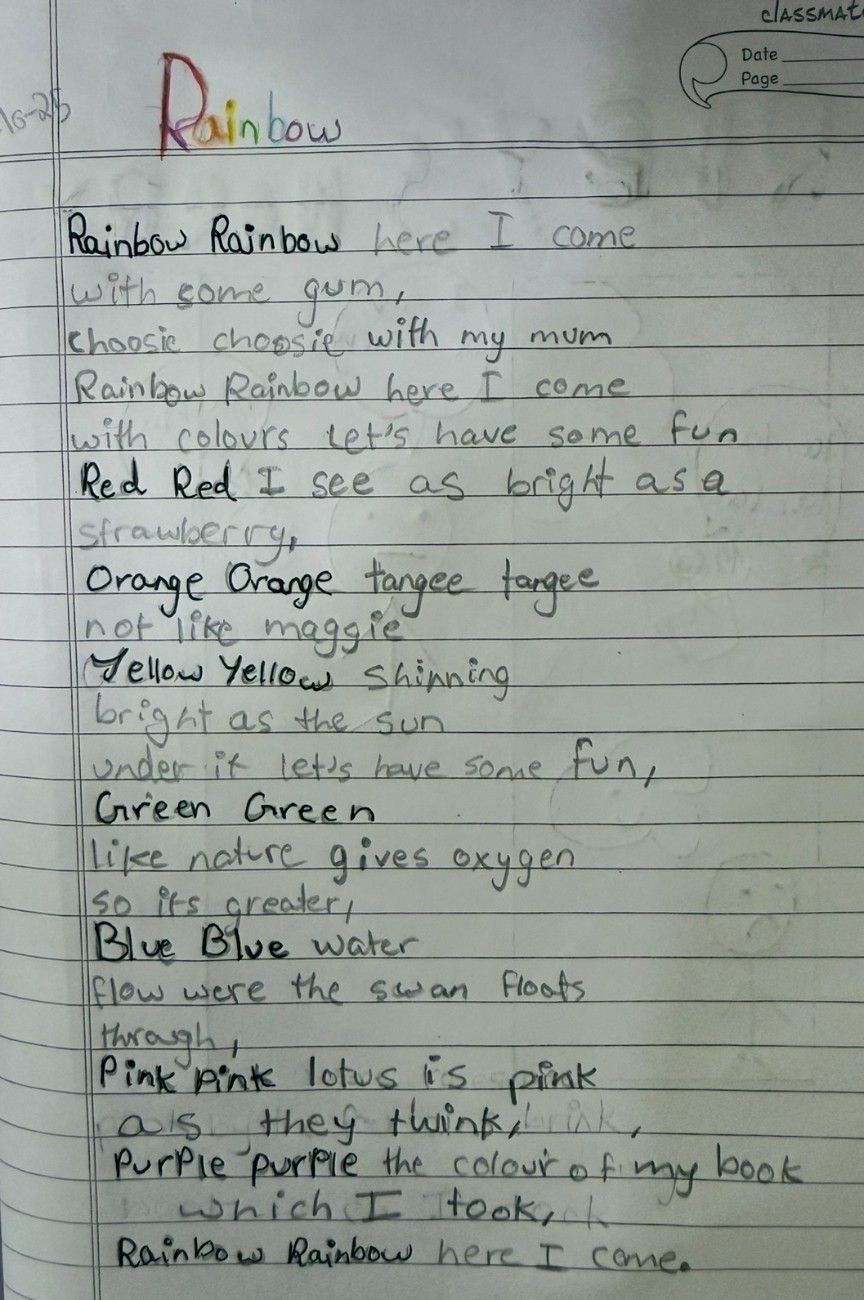 CLASSMAT
Date
Page
Rainbow
Rainbow Rainbow here I come
with some gum,
choosie choosie with my mum
Rainbow Rainbow here I come
with colours Let's have some fun
Red Red I see as bright as a
strawberry,
Orange Orange tangee tangee
not like maggie
Yellow Yellow Shinning
bright as the sun
under it let's have some fun,
Green Green
like nature gives oxygen
so its greater,
Blue Blue water
flow were the swan floats
through,
Pink pink lotus is pink
as they twink,
PurPle purPle the colour of my book
which I took,
Rainbow Rainbow here I come.